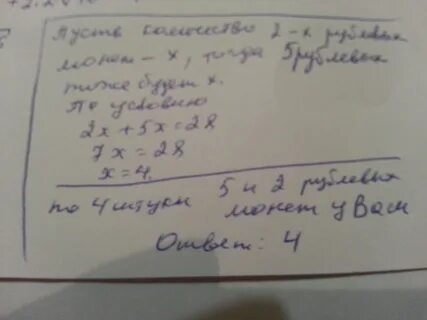 Пусть количество 2-х рублевых
монет - х, тогда 5 рублевых
тоже будет х.
По условию
2х + 5х = 28
7х = 28
х = 4.
по 4 штуки 5 и 2 рублевых
монет у Васи
Ответ: 4